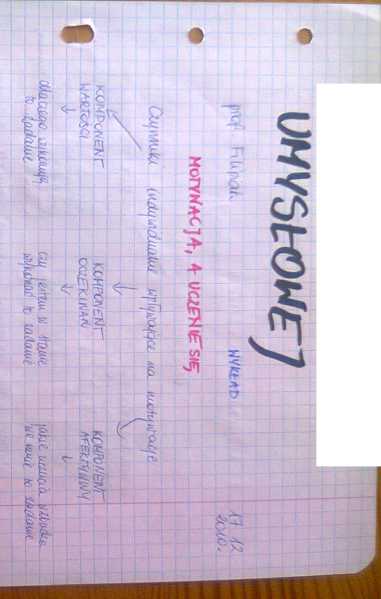 UMYSŁOWEJ
prof. Filipiak WYKŁAD 17.12
2010r.
MOTYWACJA, A UCZENIE SIĘ
Czynniki indywidualne wpływające na motywację
KOMPONENT WARTOŚCI
KOMPONENT OCZEKIWAŃ
KOMPONENT AFEKTYWNY
dlaczego wykonuję
to zadanie
czy jestem w stanie
wykonać to zadanie
jakie uczucia wzbudza
we mnie to zadanie